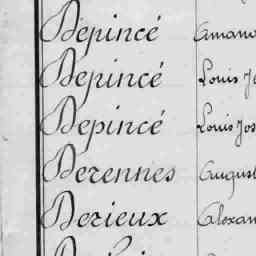 Dépincé Amand
Dépincé Louis Je
Depincé Louis Jos
Derennes August
Derieux Alexan